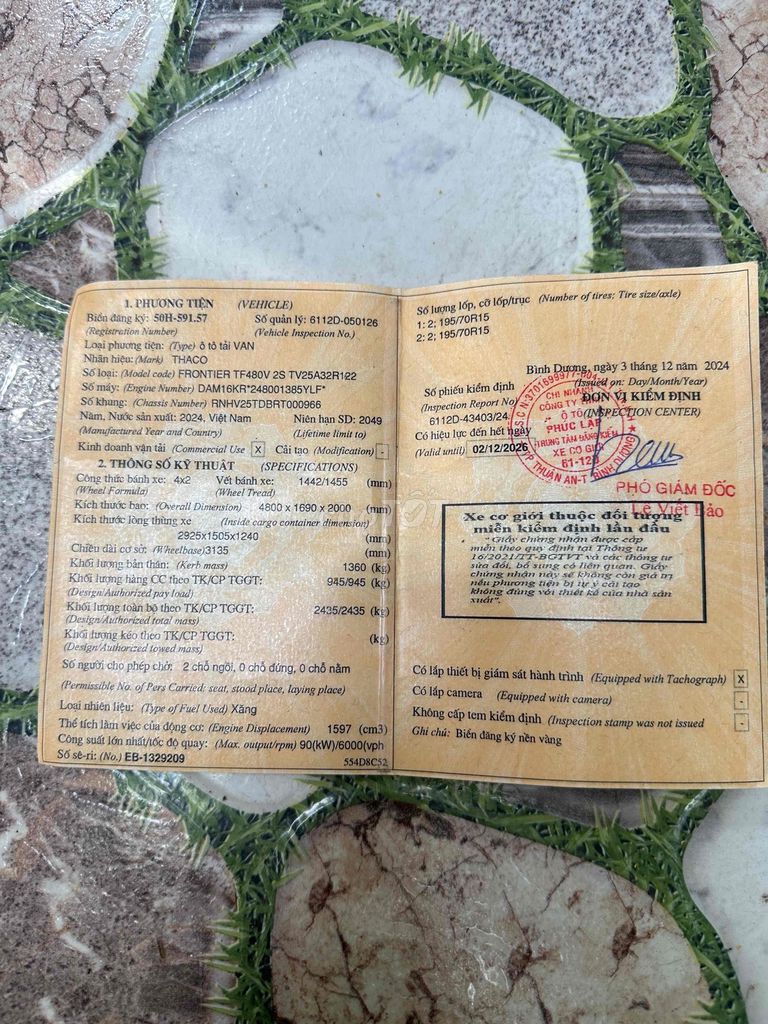 1. PHƯƠNG TIỆN (VEHICLE)
Biển đăng ký: 50H-591.57 Số quản lý: 6112D-050126
(Registration Number) (Vehicle Inspection No.)
Loại phương tiện: (Type) ô tô tải VAN
Nhãn hiệu: (Mark) THACO
Số loại: (Model code) FRONTIER TF480V 2S TV25A32R122
Số máy: (Engine Number) DAM16KR*248001385YLF*
Số khung: (Chassis Number) RNHV25TDBRT000966
Năm, Nước sản xuất: 2024, Việt Nam Niên hạn SD: 2049
(Manufactured Year and Country) (Lifetime limit to)
Kinh doanh vận tải (Commercial Use) X Cải tạo (Modification) -
2. THÔNG SỐ KỸ THUẬT (SPECIFICATIONS)
Công thức bánh xe: 4x2 Vết bánh xe: 1442/1455 (mm)
(Wheel Formula) (Wheel Tread)
Kích thước bao: (Overall Dimension) 4800 x 1690 x 2000 (mm)
Kích thước lòng thùng xe (Inside cargo container dimension)
2925x1505x1240 (mm)
Chiều dài cơ sở: (Wheelbase) 3135 (mm)
Khối lượng bản thân: (Kerb mass) 1360 (kg)
Khối lượng hàng CC theo TK/CP TGGT: 945/945 (kg)
(Design/Authorized pay load)
Khối lượng toàn bộ theo TK/CP TGGT: 2435/2435 (kg)
(Design/Authorized total mass)
Khối lượng kéo theo TK/CP TGGT: (kg)
(Design/Authorized towed mass)
Số người cho phép chở: 2 chỗ ngồi, 0 chỗ đứng, 0 chỗ nằm
(Permissible No. of Pers Carried: seat, stood place, laying place)
Loại nhiên liệu: (Type of Fuel Used) Xăng
Thể tích làm việc của động cơ: (Engine Displacement) 1597 (cm3)
Công suất lớn nhất/tốc độ quay: (Max. output/rpm) 90(kW)/6000(vph
Số sê-ri: (No.) EB-1329209 554D8C52
Số lượng lốp, cỡ lốp/trục (Number of tires; Tire size/axle)
1: 2; 195/70R15
2: 2; 195/70R15
Bình Dương, ngày 3 tháng 12 năm 2024
(Issued on: Day/Month/Year)
Số phiếu kiểm định ĐƠN VỊ KIỂM ĐỊNH
(Inspection Report No) (INSPECTION CENTER)
6112D-43403/24
Có hiệu lực đến hết ngày
(Valid until) 02/12/2026
CHI NHÁNH
CÔNG TY
Ô TÔ
PHÚC LẬP
TRUNG TÂM ĐĂNG KIỂM
XE CƠ GIỚI
61-12D
TP THUẬN AN-T BÌNH DƯƠNG
PHÓ GIÁM ĐỐC
Lê Viết Bảo
Xe cơ giới thuộc đối tượng
miễn kiểm định lần đầu
"Giấy chứng nhận được cấp
miễn theo quy định tại Thông tư
16/2021/TT-BGTVT và các thông tư
sửa đổi, bổ sung có liên quan. Giấy
chứng nhận này sẽ không còn giá trị
nếu phương tiện bị tự ý cải tạo
không đúng với thiết kế của nhà sản
xuất".
Có lắp thiết bị giám sát hành trình (Equipped with Tachograph) X
Có lắp camera (Equipped with camera) -
Không cấp tem kiểm định (Inspection stamp was not issued -
Ghi chú: Biển đăng ký nền vàng